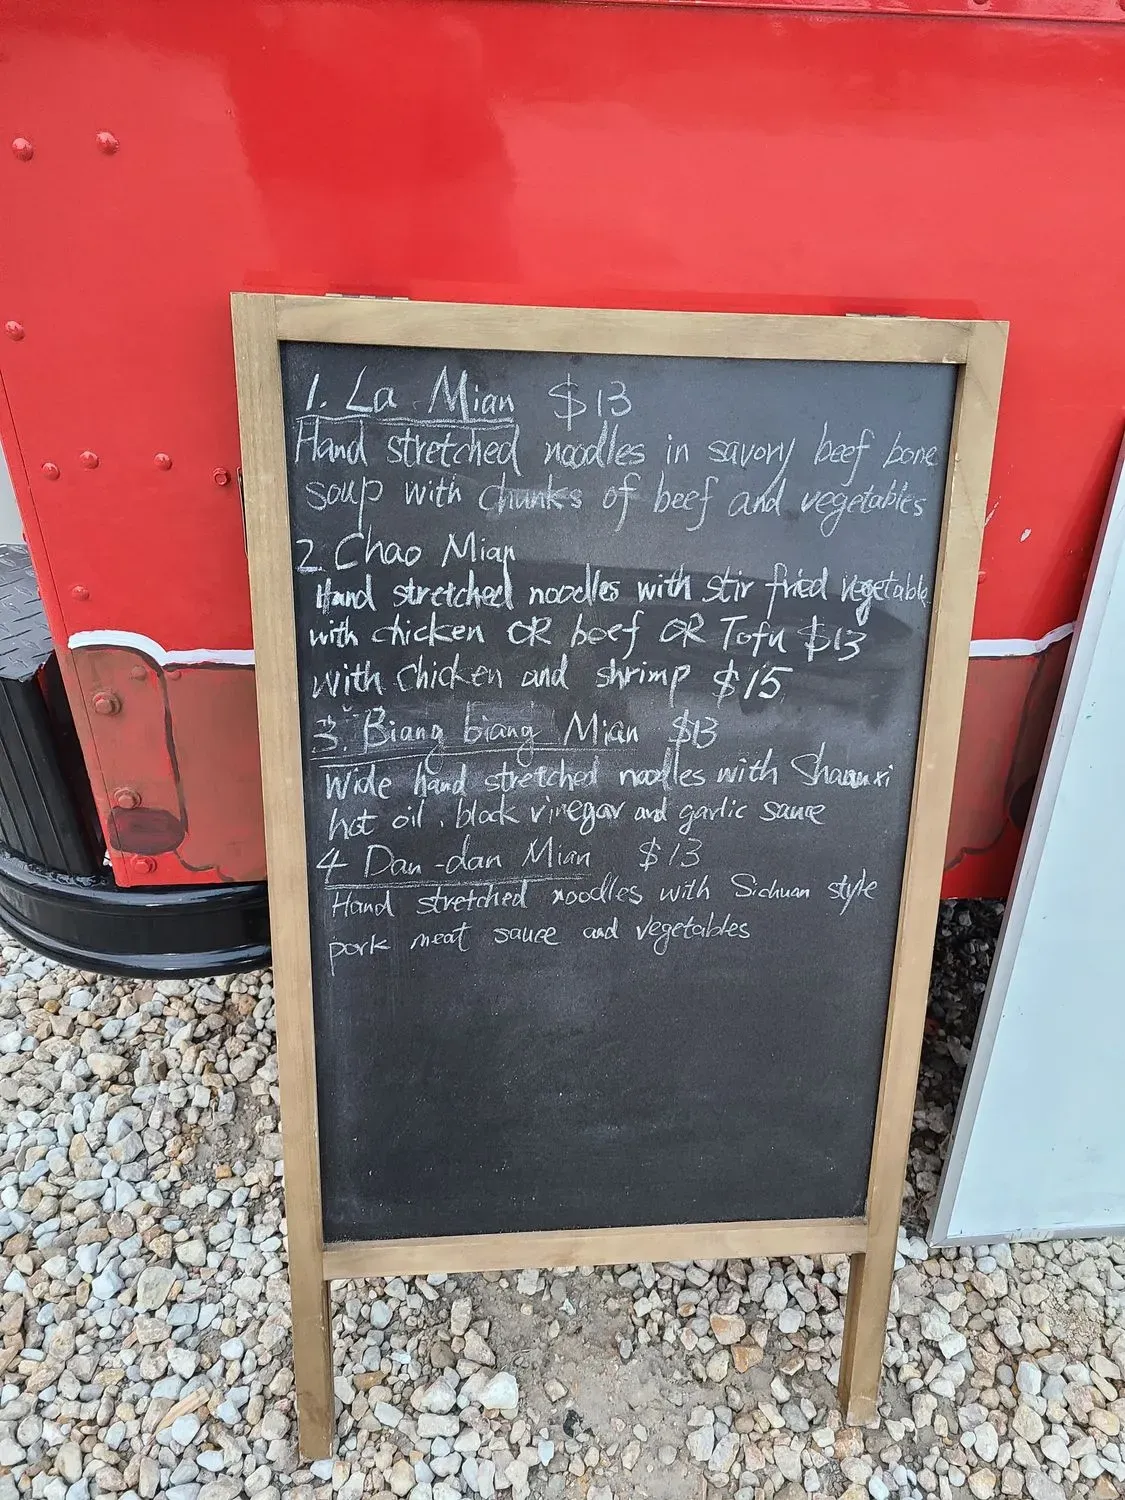 1. La Mian $13
Hand stretched noodles in savory beef bone
soup with chunks of beef and vegetables
2. Chao Mian
Hand stretched noodles with stir fried vegetable
with chicken OR beef OR Tofu $13
with chicken and shrimp $15
3. Biang biang Mian $13
Wide hand stretched noodles with Shaanxi
hot oil, black vinegar and garlic sauce
4 Dan-dan Mian $13
Hand stretched noodles with Sichuan style
pork meat sauce and vegetables